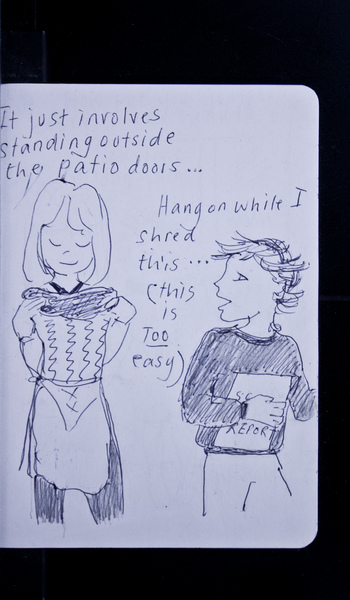 It just involves
standing outside
the patio doors...
Hang on while I
shred
this ...
(this
is
Too
easy)
REPORT